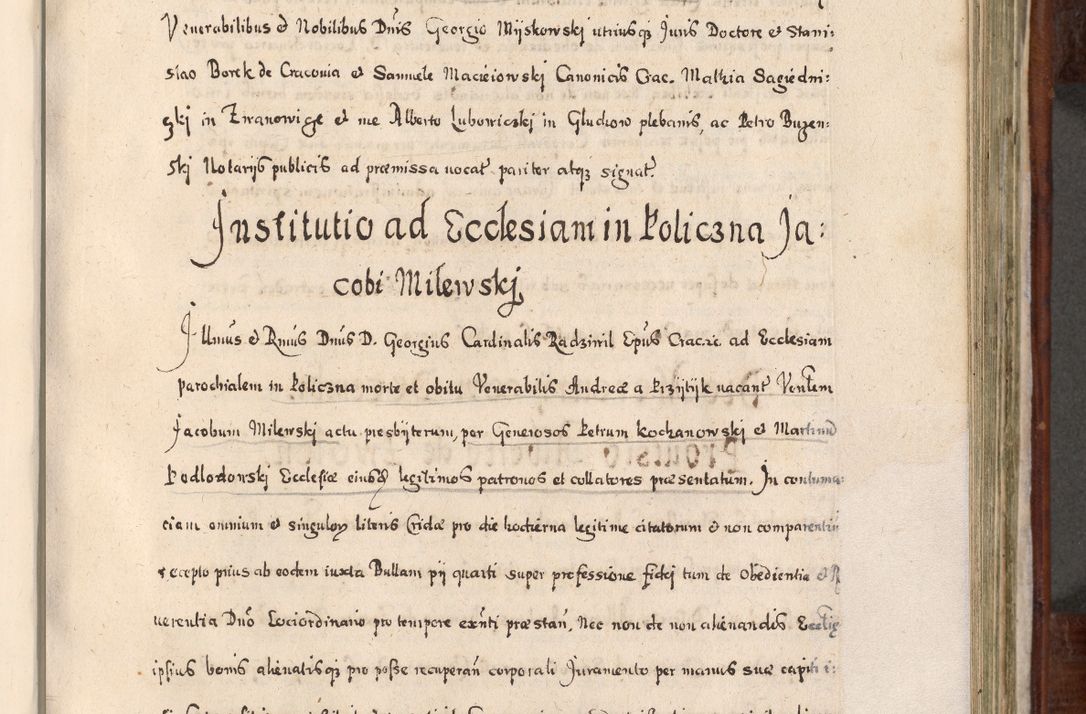 Venerabilibus et Nobilibus Dnis Georgio Myskowskj utriusq Juris Doctore et Stani:
slao Borek de Cracovia et Samuele Macieiowskj Canonicis Crac. Mathia Sagiedni:
zkj in Zwanowige et me Alberto Lubowiczkj in Gluchow plebanis, ac Petro Buzen:
skj Notarijs publicis ad præmissa vocat pariter atqz signat.
Institutio ad Ecclesiam in Policzna Ja:
cobi Milewskj
Illmus et Rmus Dnus D. Georgius Cardinalis Radziwil Epus Crac. etc. ad Ecclesiam
parochialem in Policzna morte et obitu Venerabilis Andreæ a Przytyk vacant Ventem
Jacobum Milewskj actu presbyterum, per Generosos Petrum Kochanowskj et Martinum
Podlodowskj Ecclesiæ eiusd legitimos patronos et collatores præsentatum. In contuma:
ciam omnium et singulor literis Cridæ pro die hodierna legitime citatorum et non comparentiu
recepto prius ab eodem iuxta Bullam pij quarti super professione fidej tum de obedientia et R
verentia Dno Lociordinario pro tempore exnti præstan, Nec non de non alienandis Ecclie
ipsius bonis alienatisq pro posse recuperan corporali Juramento per manus suæ capiti i: